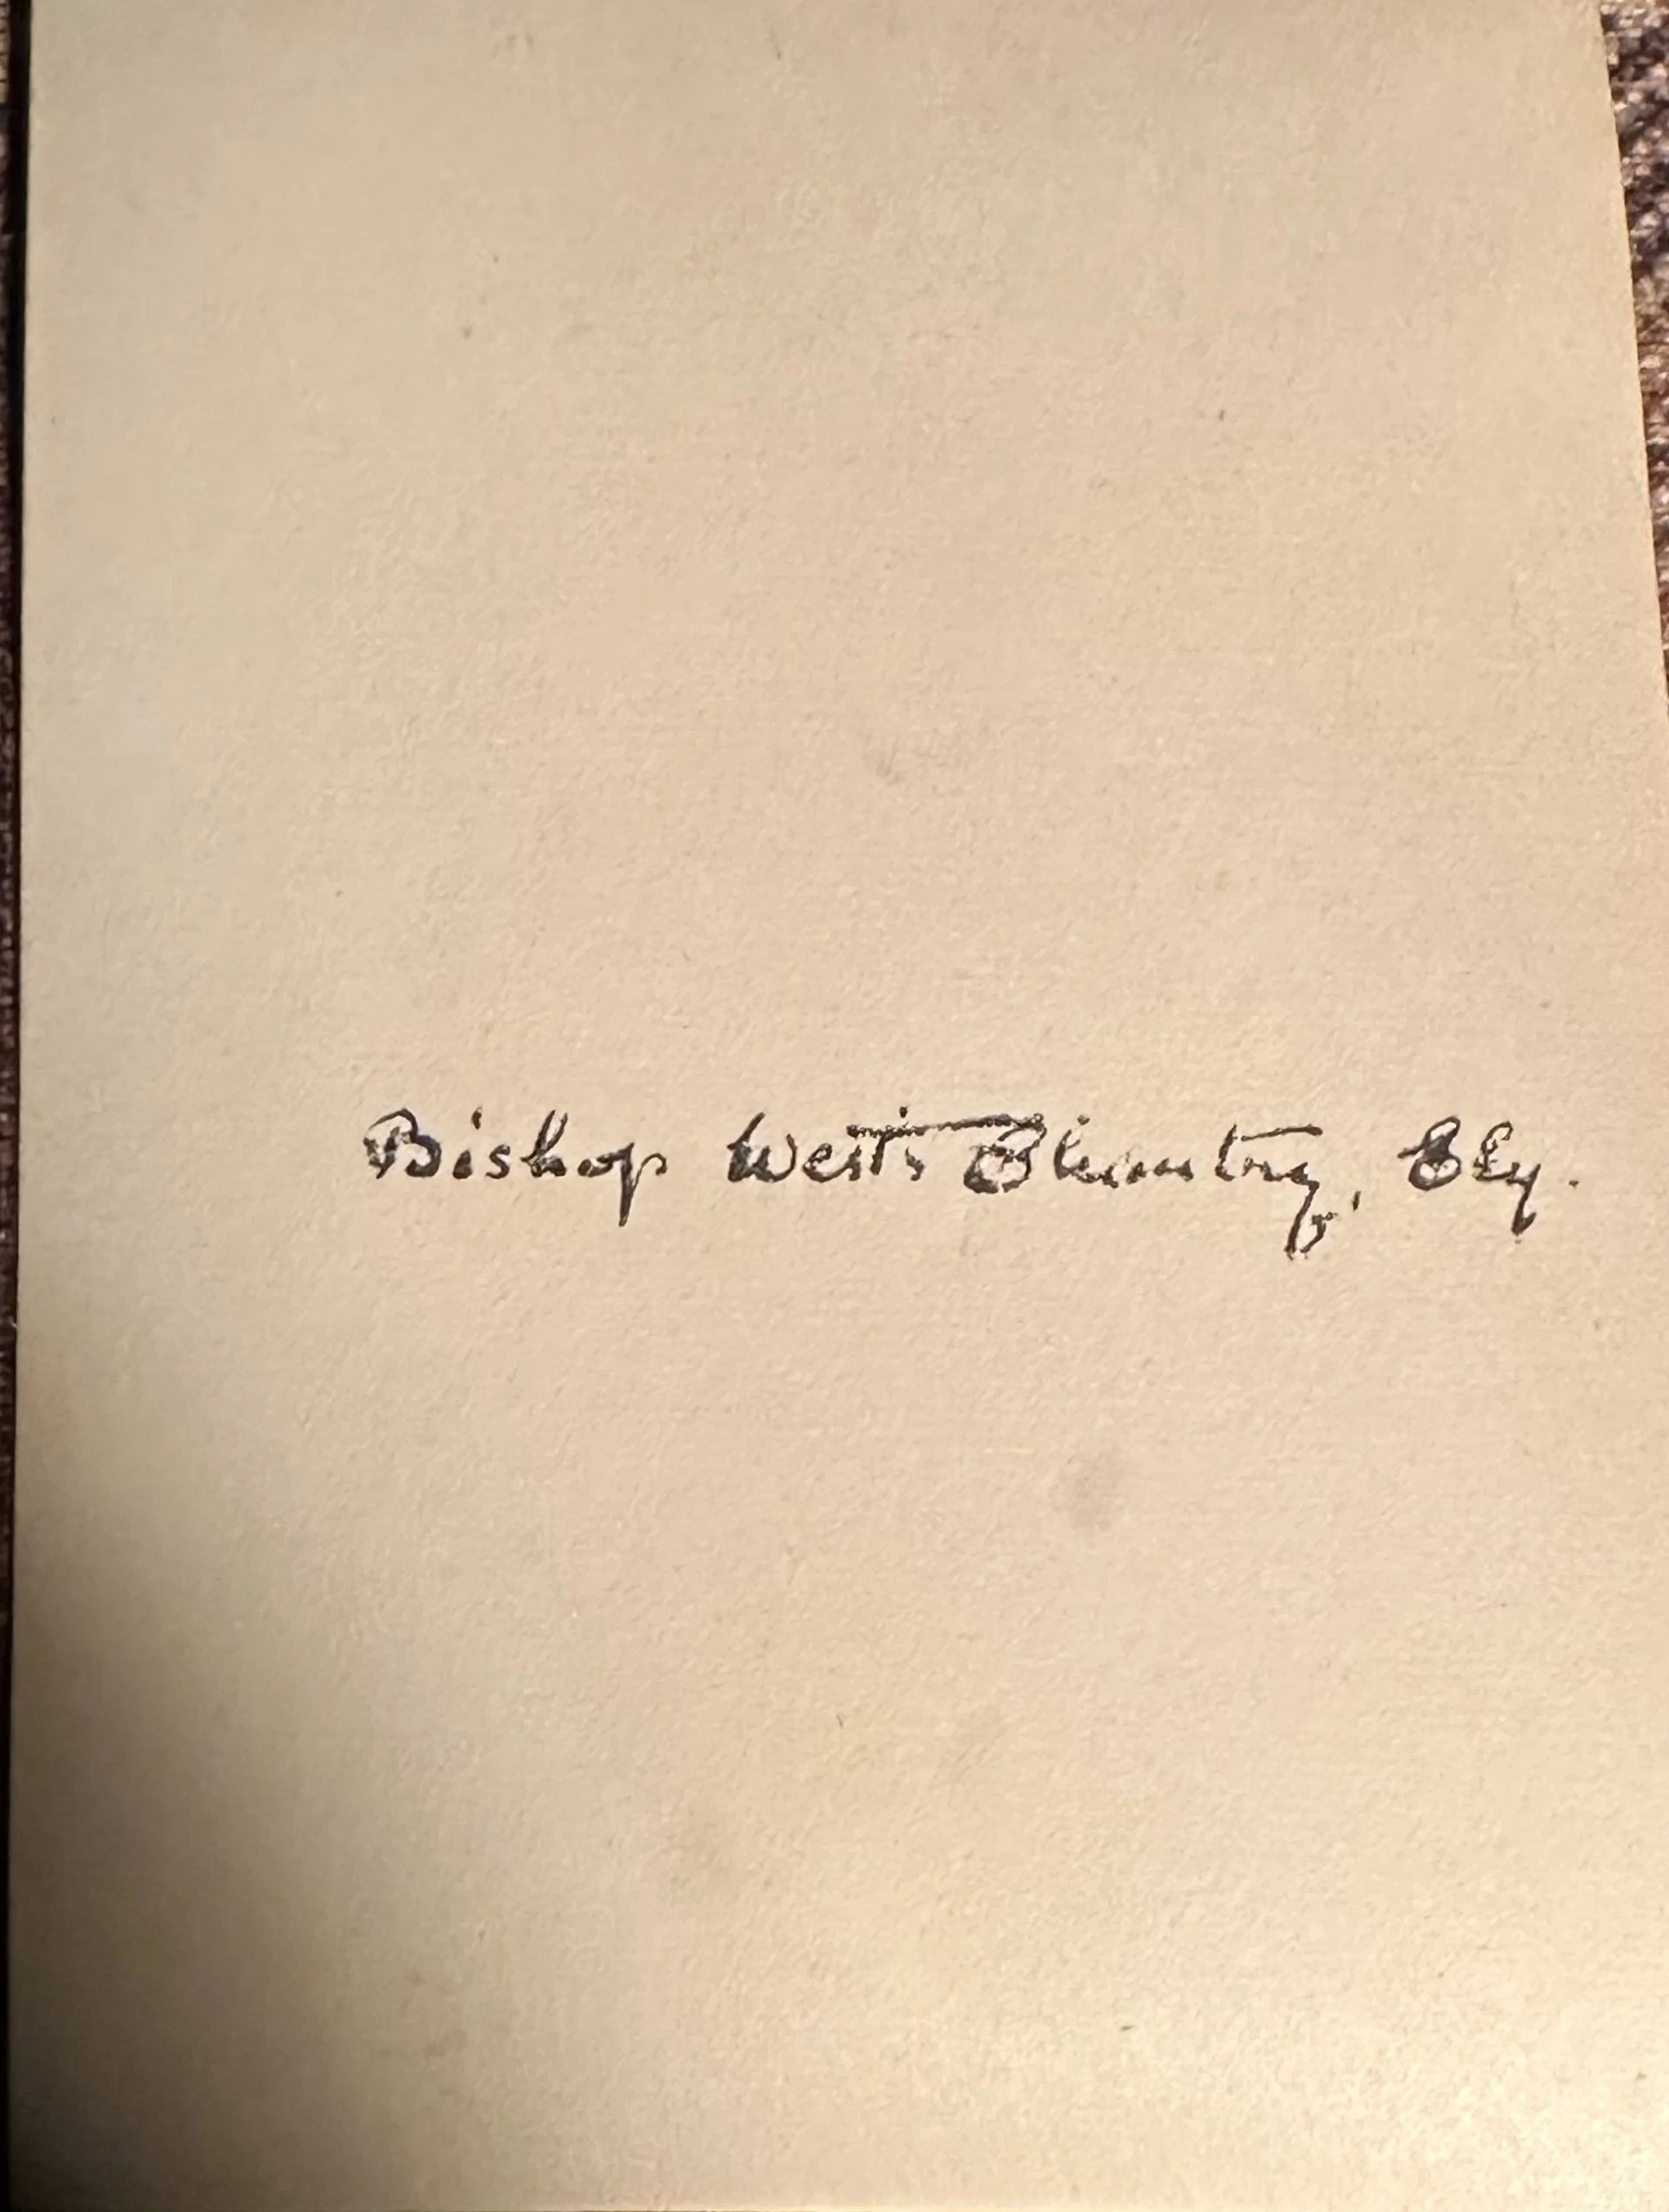 Bishop West's Chantry, Ely.